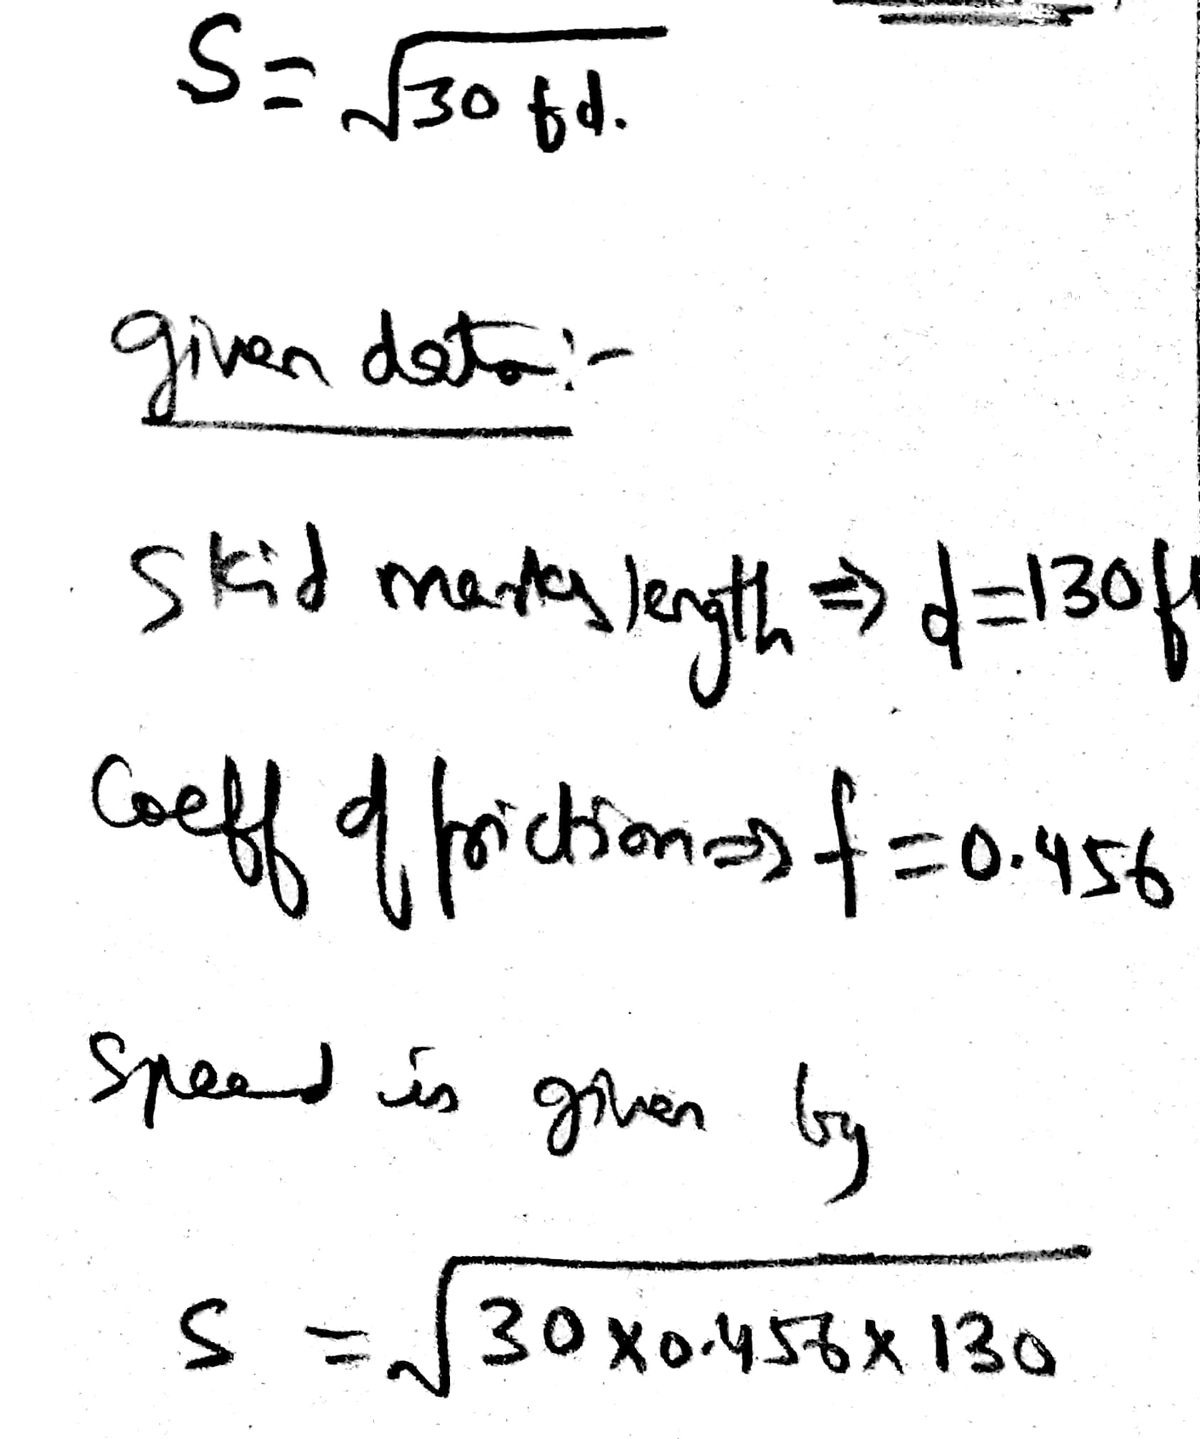 S = √30 fd.
given data :-
Skid marks length ⇒ d = 130 f
Coeff of friction ⇒ f = 0.456
Speed is given by
S = √30 x 0.456 x 130